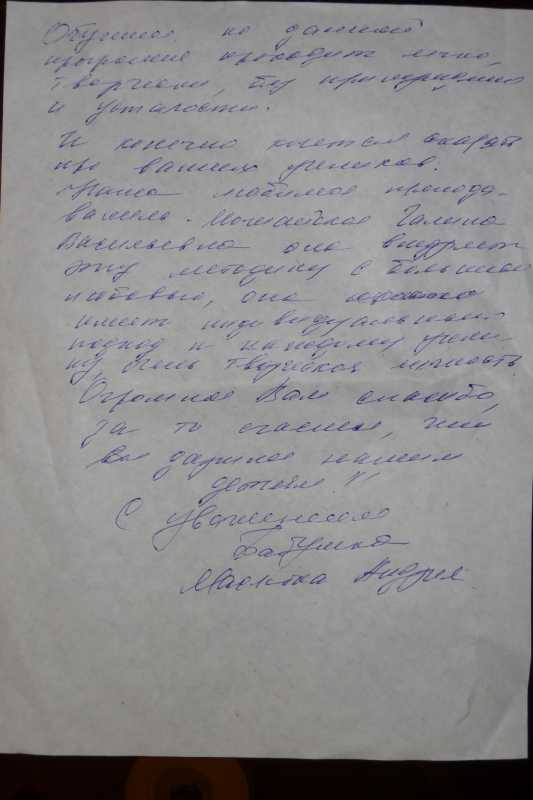 Обучение по данной
программе проходит легко,
творчески, без принуждения
и усталости.
И конечно хочется сказать
про ваших учеников.
Наша любимая препода-
ватель - Галина
Васильевна она внедряет
эту методику с большой
любовью, она
имеет индивидуальный
подход к каждому учени-
ку, очень творческая личность.
Огромное Вам спасибо,
за то счастье, что
Вы дарите нашим
детям!!
С уважением
бабушка
Андрея